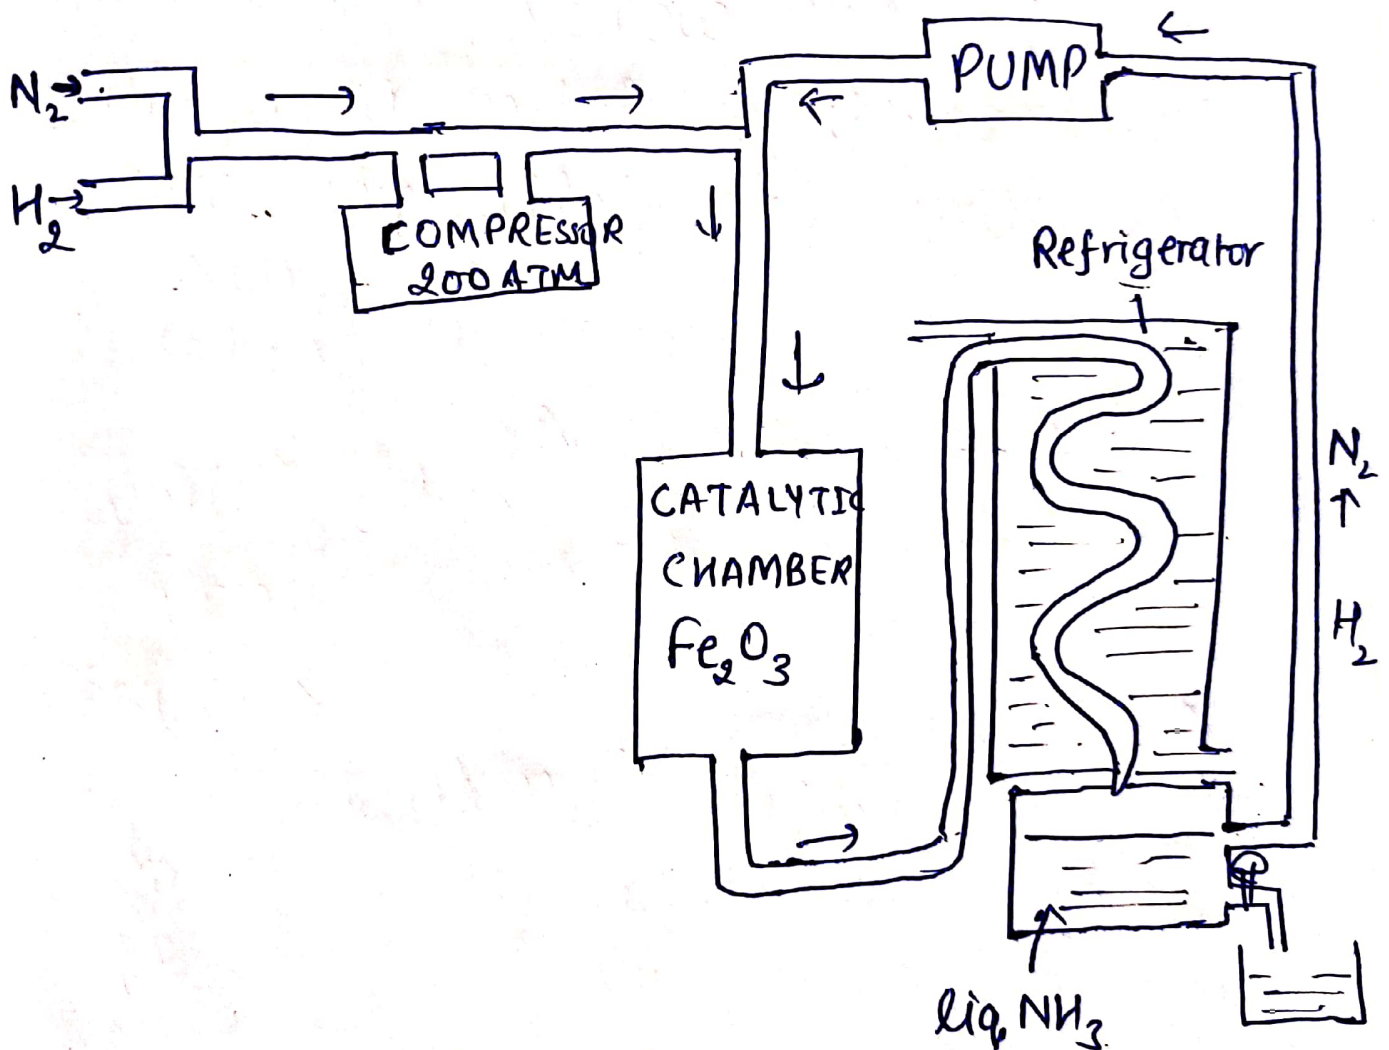 N2
H2
COMPRESSOR
200 ATM
PUMP
Refrigerator
CATALYTIC
CHAMBER
Fe2O3
N2
H2
liq. NH3